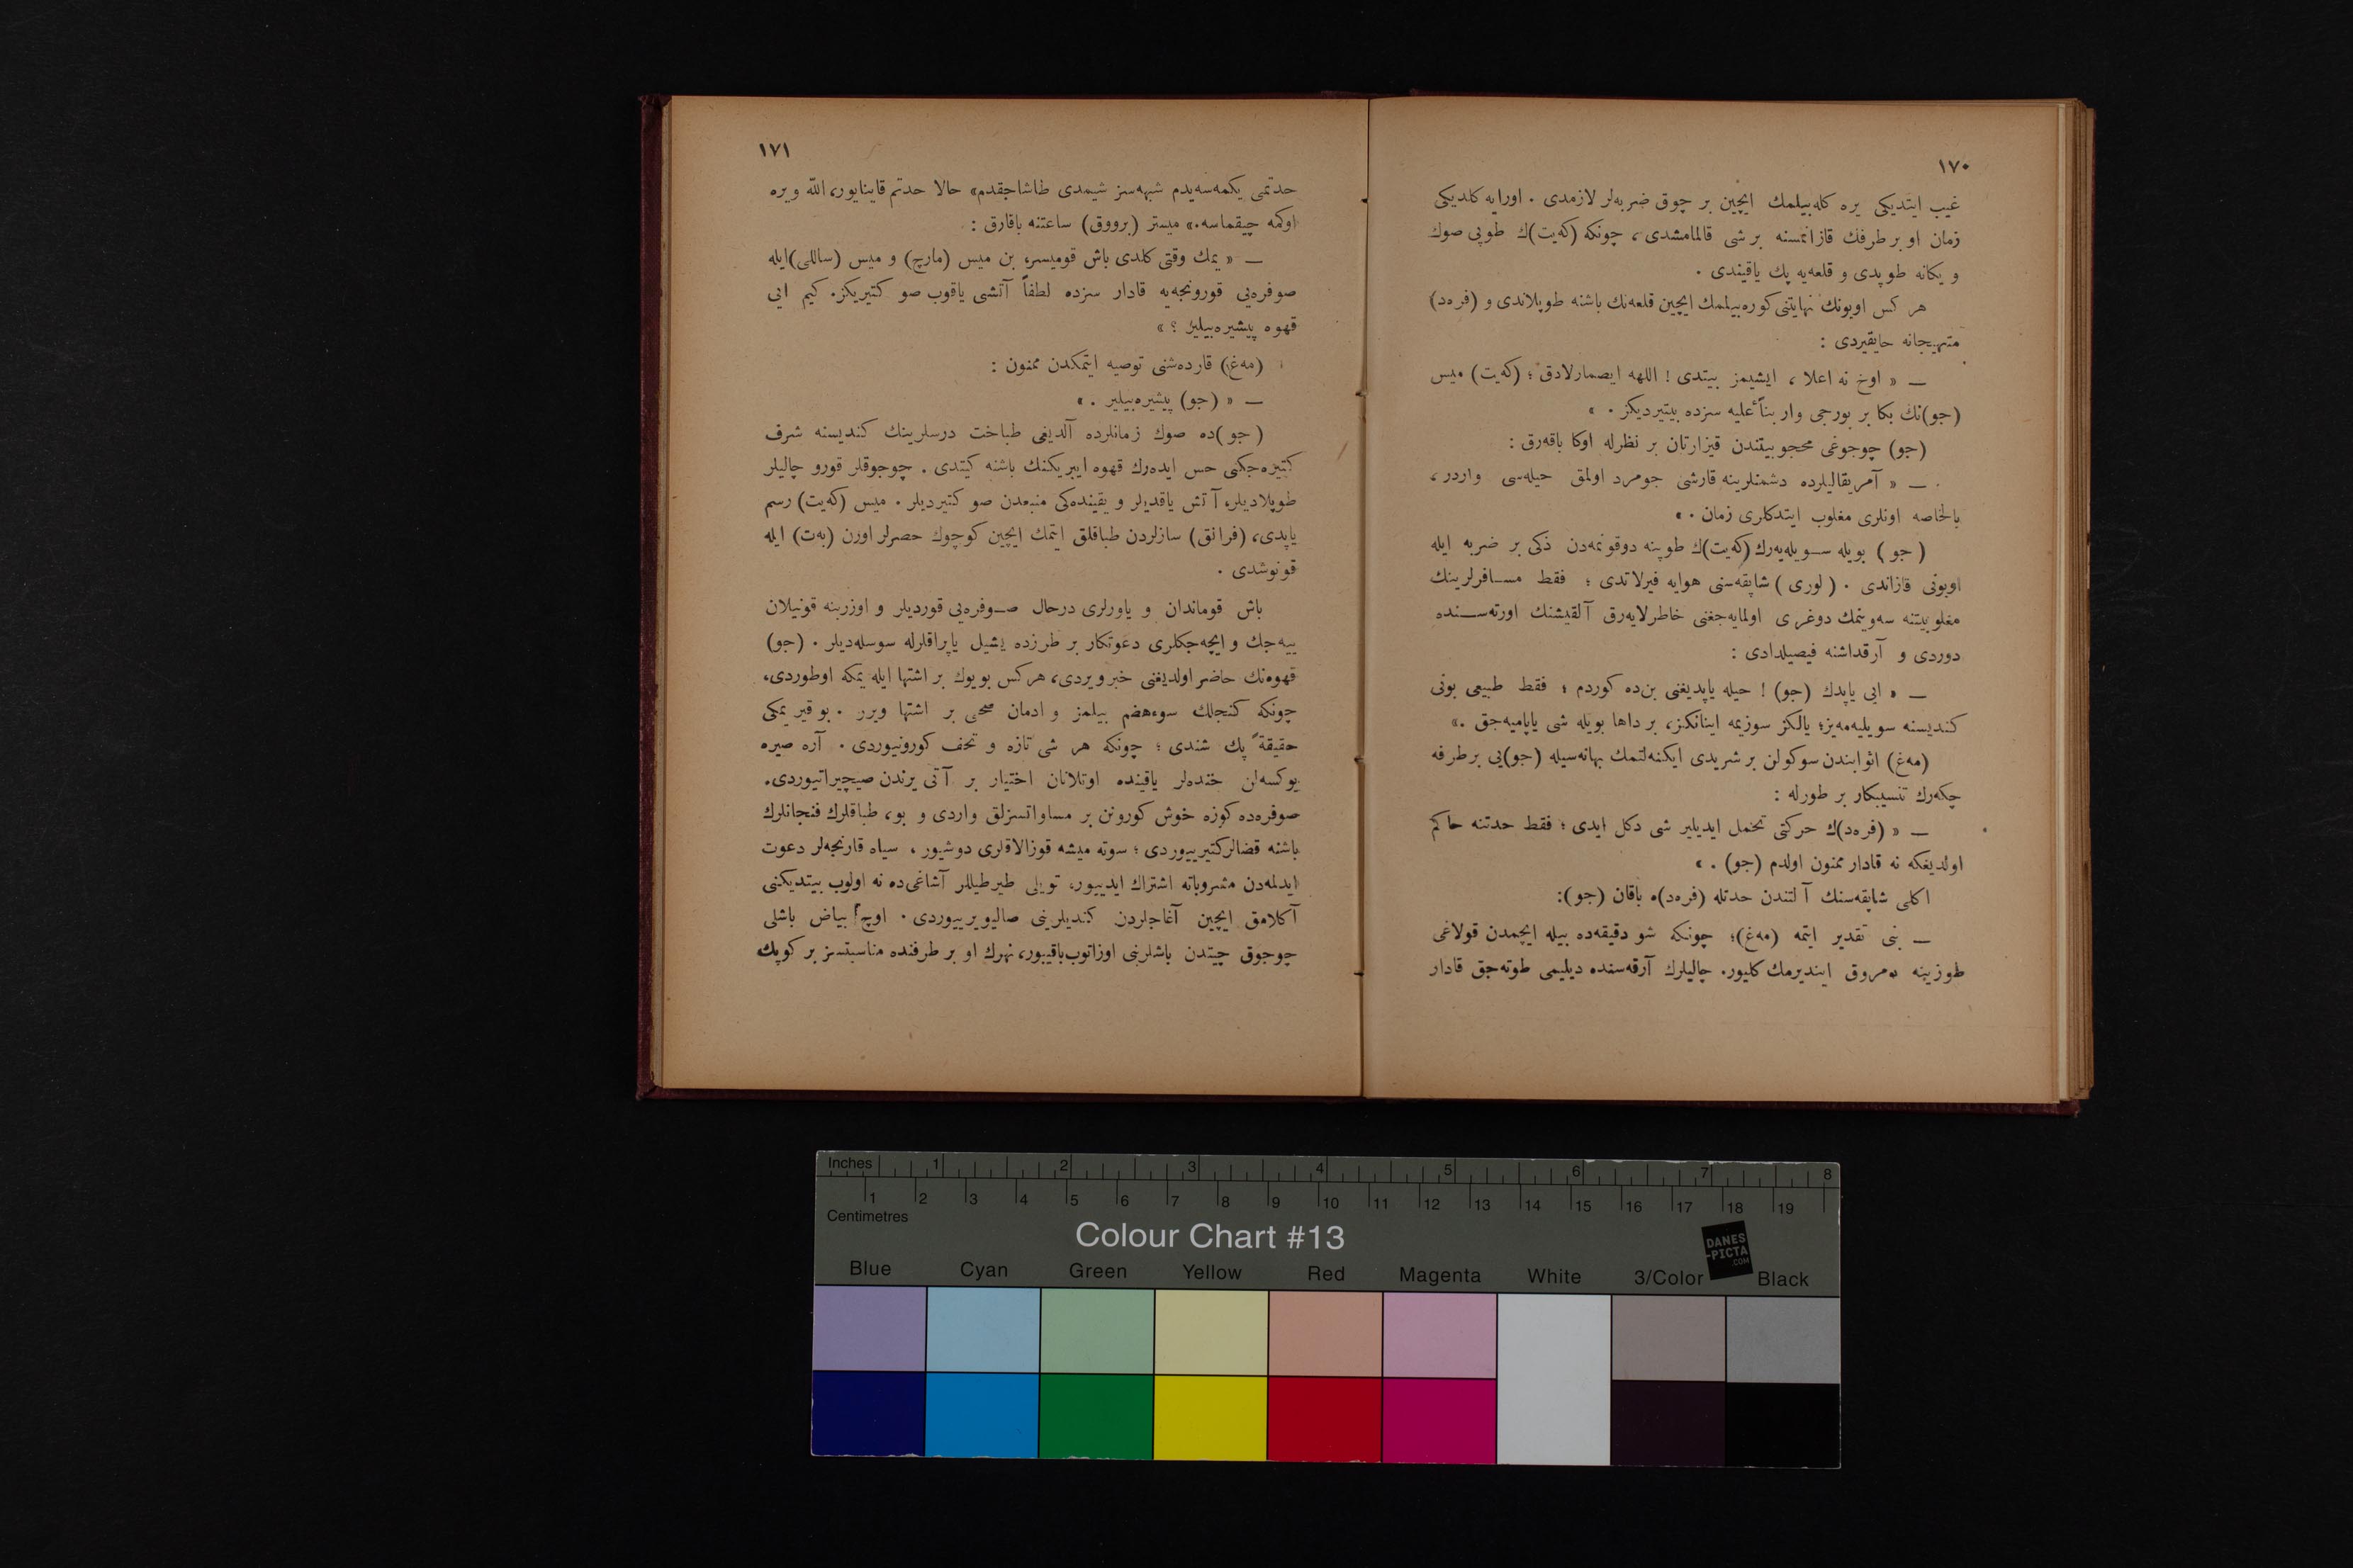 ١٧٠
غيب ايتديكى يره كله‌بيلمك ايچين بر چوق ضربه‌لر لازمدى . اورايه كلديكى
زمان اوبر طرفك قازانمسنه بر شى قالمامشدى ، چونكه (كه‌يت)ك طوپى صوك
و يكانه طوپدى و قلعه‌يه پك ياقيندى .
هر كس اويونك نهايتنى كوره‌بيلمك ايچين قلعه‌نك باشنه طوپلاندى و (فره‌د)
متهيجانه حايقيردى :
— « اوخ نه اعلا ، ايشيمز بيتدى ! اللهه ايصمارلادق ؛ (كه‌يت) ميس
(جو)نك بكا بر بورجى وار بناءً عليه سزده بيتيرديكز . »
(جو) چوجوغى محجوبيتندن قيزارتان بر نظرله اوكا باقه‌رق :
— « آمريقاليلرده دشمنلرينه قارشى جومرد اولمق حيله‌سى واردر ،
بالخاصه اونلرى مغلوب ايتدكلرى زمان . »
(جو) بويله سويله‌يه‌رك (كه‌يت)ك طوپنه دوقونمه‌دن ذكى بر ضربه ايله
اويونى قازاندى . (لورى) شاپقه‌سنى هوايه فيرلاتدى ؛ فقط مسافرلرينك
مغلوبيتنه سه‌وينمك دوغرى اولمايه‌جغنى خاطرلايه‌رق آلقيشنك اورته‌سنده
دوردى و آرقداشنه فيصيلدادى :
— « ايى ياپدك (جو) ! حيله ياپديغنى بن‌ده كوردم ؛ فقط طبيعى بونى
كنديسنه سويليه‌مه‌يز؛ يالكز سوزيمه اينانكز، بر داها بويله شى ياپاميه‌جق .»
(مه‌غ) اثوابندن سوكولن بر شريدى ايكنه‌لتمك بهانه‌سيله (جو)يى برطرفه
چكه‌رك تنسيبكار بر طورله :
— « (فره‌د)ك حركتى تحمل ايديلير شى دكل ايدى ؛ فقط حدتنه حاكم
اولديغكه نه قادار ممنون اولدم (جو) . »
اكلى شاپقه‌سنك آلتندن حدتله (فره‌د)ه باقان (جو):
— بنى تقدير ايتمه (مه‌غ)؛ چونكه شو دقيقه‌ده بيله ايچمدن قولاغى
طوزينه يومروق اينديرمك كليور. چاليلرك آرقه‌سنده ديليمى طوته‌جق قادار
١٧١
حدتمى يكمه‌سه‌يدم شبهه‌سز شيمدى طاشاجقدم» حالا حدتم قاينايور، الله ويره
اوكمه چيقماسه.» ميستر (برووق) ساعتنه باقارق :
— « يمك وقتى كلدى باش قوميسر، بن ميس (مارچ) و ميس (ساللى)ايله
صوفره‌يى قورونجه‌يه قادار سزده لطفاً آتشى ياقوب صو كتيريكز. كيم ايى
قهوه پيشيره‌بيلير ؟ »
(مه‌غ) قارده‌شنى توصيه ايتمكدن ممنون :
— « (جو) پيشيره‌بيلير . »
(جو)ده صوك زمانلرده آلديغى طباخت درسلرينك كنديسنه شرف
كتيره‌جكنى حس ايده‌رك قهوه ايبريكنك باشنه كيتدى . چوجوقلر قورو چاليلر
طوپلاديلر، آتش ياقديلر و يقينده‌كى منبعدن صو كتيرديلر . ميس (كه‌يت) رسم
ياپدى، (فرانق) سازلردن طباقلق ايتمك ايچين كوچوك حصرلر اورن (به‌ت) ايله
قونوشدى .
باش قوماندان و ياورلرى درحال صوفره‌يى قورديلر و اوزرينه قونيلان
ييه‌جك و ايچه‌جكلرى دعوتكار بر طرزده يشيل ياپراقلرله سوسله‌ديلر . (جو)
قهوه‌نك حاضر اولديغنى خبر ويردى، هركس بويوك بر اشتها ايله يمكه اوطوردى،
چونكه كنجلك سوءهضم بيلمز و ادمان صحى بر اشتها ويرر . بو قير يمكى
حقيقةً پك شندى ؛ چونكه هر شى تازه و تحف كورونيوردى . آره صيره
يوكسه‌لن خنده‌لر ياقينده اوتلانان اختيار بر آتى يرندن صيچيراتيوردى.
صوفره‌ده كوزه خوش كورونن بر مساواتسزلق واردى و بو، طباقلرك فنجانلرك
باشنه قضالر كتيرييوردى ؛ سوته ميشه قوزالاقلرى دوشيور ، سياه قارنجه‌لر دعوت
ايدلمه‌دن مشروباته اشتراك ايدييور، تويلى طيرطيللر آشاغى‌ده نه اولوب بيتديكنى
آكلامق ايچين آغاجلردن كنديلرينى صاليويرييوردى . اوچ بياض باشلى
چوجوق چيتدن باشلرينى اوزاتوب‌باقييور، نهرك او بر طرفنده مناسبتسز بر كوپك
Inches 1 2 3 4 5 6 7 8
1 2 3 4 5 6 7 8 9 10 11 12 13 14 15 16 17 18 19
Centimetres
Colour Chart #13
DANES
-PICTA
.COM
Blue Cyan Green Yellow Red Magenta White 3/Color Black